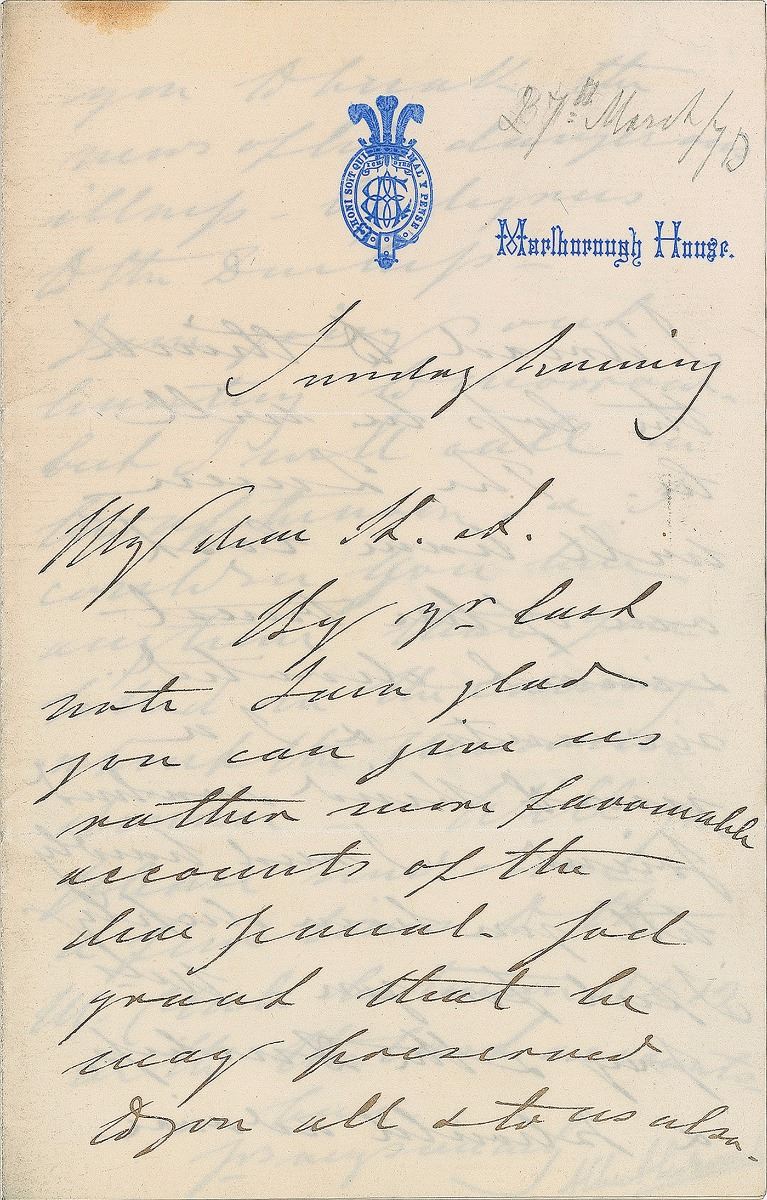 27th March/70
HONI SOIT QUI MAL Y PENSE
Marlborough House.
Sunday Evening
My dear St. A.
By yr last
note I am glad
you can give us
rather more favourable
accounts of the
dear General. God
grant that he
may preserved
to you all & to us also.